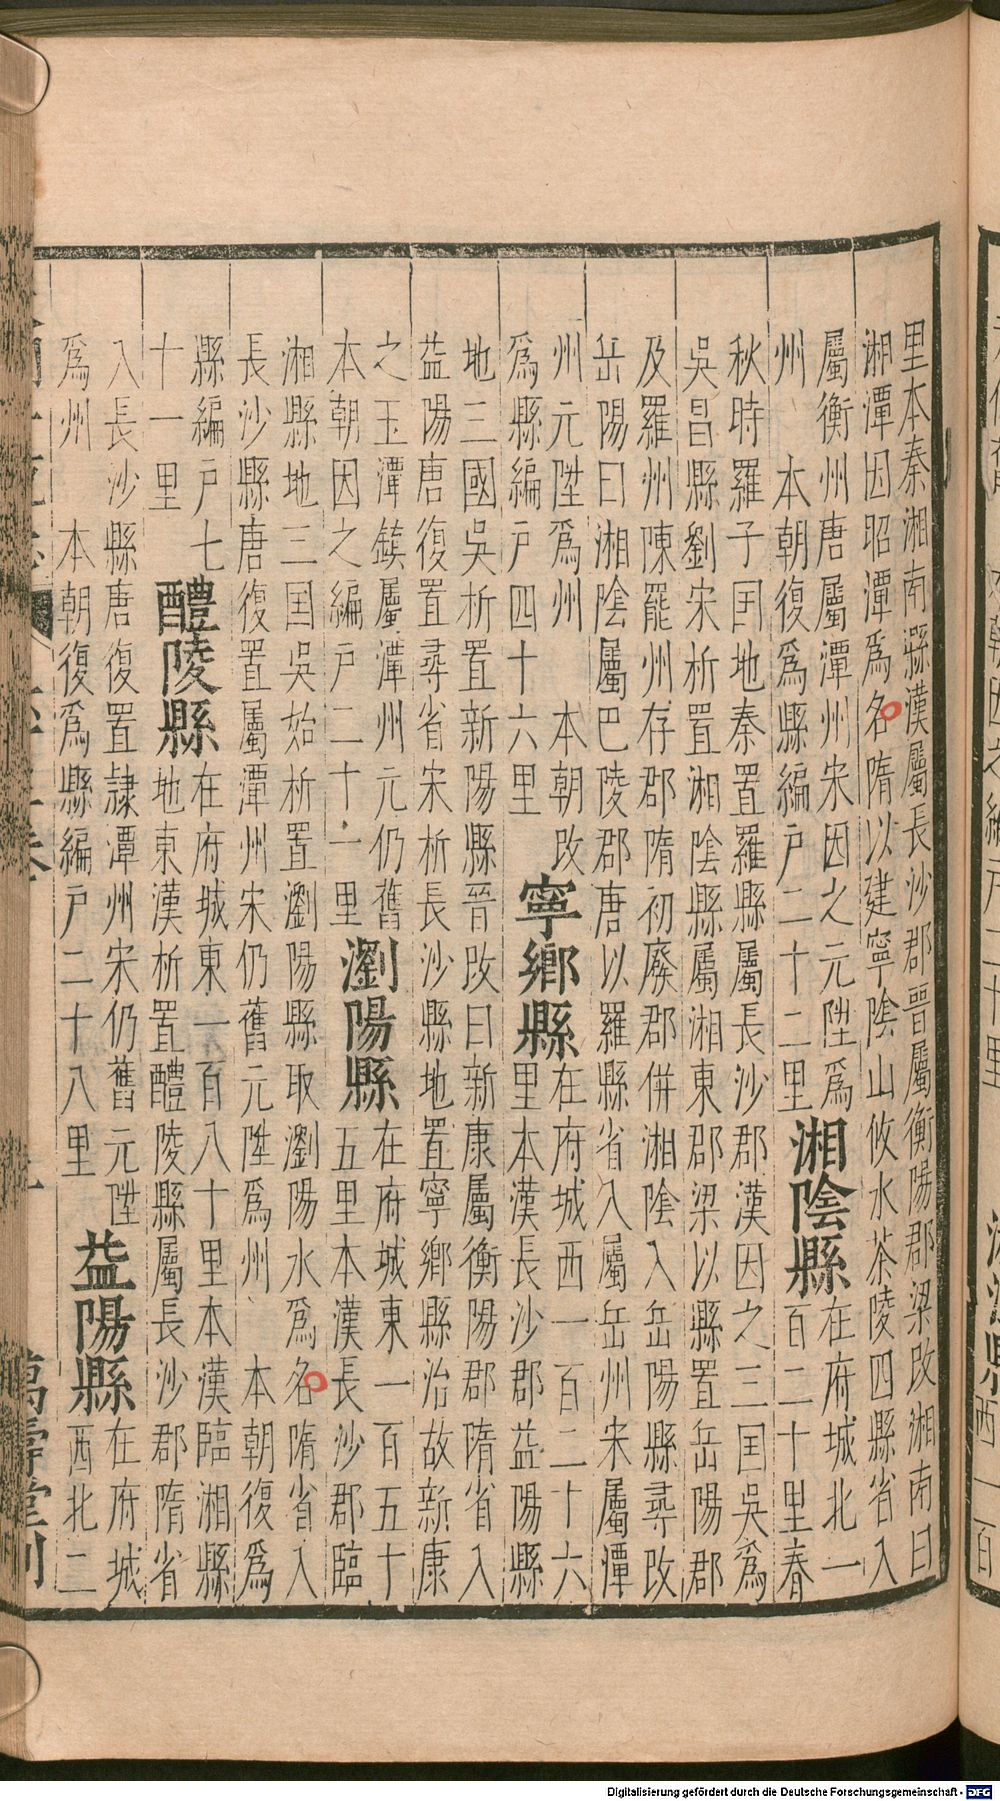 里本秦湘南縣漢屬長沙郡晉屬衡陽郡梁改湘南曰
湘潭因昭潭爲名隋以建寧陰山攸水茶陵四縣省入
屬衡州唐屬潭州宋因之元陞爲
州 本朝復爲縣編戶二十二里
湘陰縣
在府城北一
百二十里春
秋時羅子囯地秦置羅縣屬長沙郡漢因之三囯吳爲
吳昌縣劉宋析置湘陰縣屬湘東郡梁以縣置岳陽郡
及羅州陳罷州存郡隋初廢郡併湘陰入岳陽縣尋改
岳陽曰湘陰屬巴陵郡唐以羅縣省入屬岳州宋屬潭
州元陞爲州 本朝改
爲縣編戶四十六里
寧鄉縣
在府城西一百二十六
里本漢長沙郡益陽縣
地三國吳析置新陽縣晉改曰新康屬衡陽郡隋省入
益陽唐復置尋省宋析長沙縣地置寧鄉縣治故新康
之玉潭鎮屬潭州元仍舊
本朝因之編戶二十一里
瀏陽縣
在府城東一百五十
五里本漢長沙郡臨
湘縣地三囯吳始析置瀏陽縣取瀏陽水爲名隋省入
長沙縣唐復置屬潭州宋仍舊元陞爲州 本朝復爲
縣編戶七
十一里
醴陵縣
在府城東一百八十里本漢臨湘縣
地東漢析置醴陵縣屬長沙郡隋省
入長沙縣唐復置隸潭州宋仍舊元陞
爲州 本朝復爲縣編戶二十八里
益陽縣
在府城
西北二
萬壽堂刊
Digitalisierung gefördert durch die Deutsche Forschungsgemeinschaft - DFG